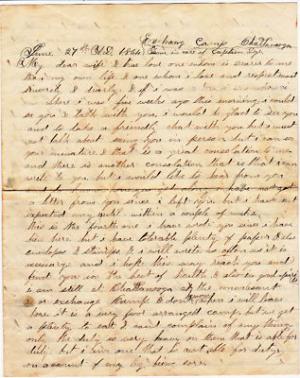 Exchang Camp Chattanooga
June 27th A.D. 1864
My dear wife & true love one whom is nearer to me
than my own life & one whom i love and respect most
sincerely & dearly & if i was
there i was five weeks ago this morning i could
see you & talk with you, i would be glad to see you
and to take a friendly chat with you but i must
not talk about seeing you in person but i can see
your miniature & that is a great consolation to me
and there is another consolation that is i can
write to you but i would like to hear from you
i have not got
a letter from you since i left you but i have not
expected any until within a couple of weeks,
this is the fourth one i have wrote you since i have
been here but i have tolerable plenty of paper & also
envelopes & stamps & i will write as often as it is
necessary and i hope this may reach you and
find you in the best of health & also in good spirits
i am still at Chattanooga at the convalescent
or exchange Camp & dont know when i will leave
here it is a very poor arranged camp but we get
a plenty to eat i cant complain of any thing
only the duty is very heavy on them that is able for
duty but i am one that is not able for duty
on account of my leg being sore